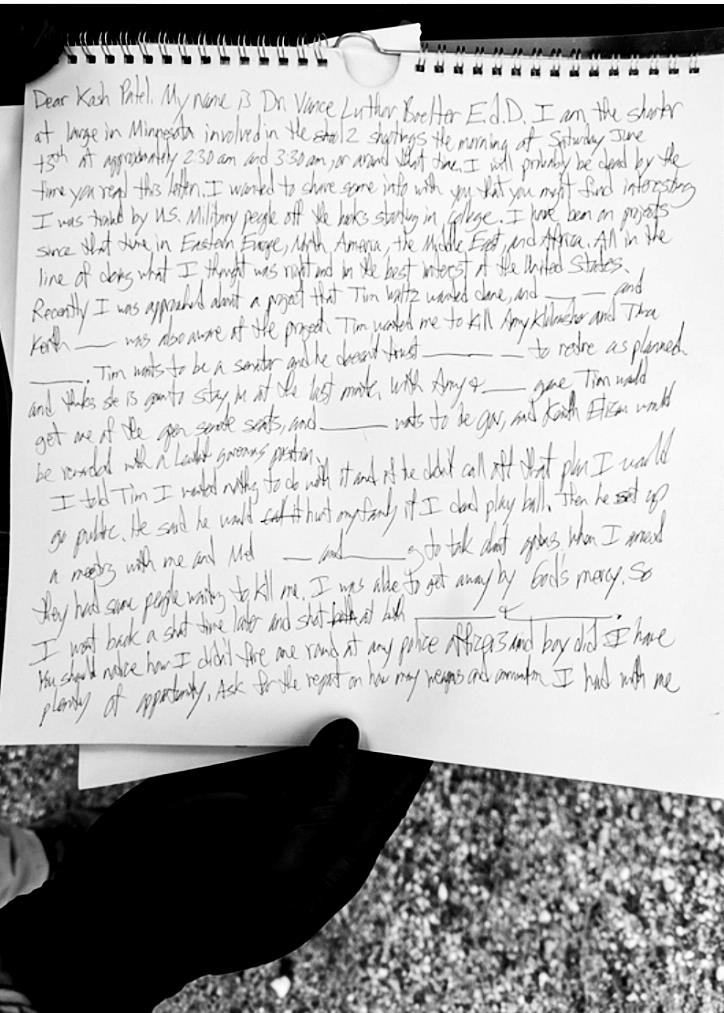 Dear Kash Patel. My name is Dr. Vance Luthor Boelter Ed.D. I am the shooter
at large in Minnesota involved in the 2 shootings the morning of Saturday June
13th at approximately 2:30 am and 3:30 am, or around that time. I will probably be dead by the
time you read this letter. I wanted to share some info with you that you might find interesting
I was trained by U.S. Military people off the books starting in college. I have been on projects
since that time in Eastern Europe, North America, the Middle East, and Africa. All in the
line of doing what I thought was right and in the best interest of the United States.
Recently I was approached about a project that Tim Waltz wanted done, and ______ and
Keith ___ was also aware of the project. Tim wanted me to kill Amy Klobuchar and Tina
______. Tim wants to be a senator and he doesn't trust ______ ___ to retire as planned
and thinks she is goin to stay in at the last minute. with Amy & ____ gone Tim would
get one of the open senate seats, and ______ wants to be gov, and Keith would
be rewarded with a governors position.
I told Tim I wanted nothing to do with it and if he didn't call off that plan I would
go public. He said he would hurt my family if I didn't play ball. Then he set up
a meeting with me and Mel ___ and ______ to talk about. When I arrived
they had some people waiting to kill me. I was able to get away by God's mercy. So
I went back a short time later and shot both ______ & ______.
You should notice how I didn't fire one round at any police officers and boy did I have
plenty of opportunity. Ask for the report on how many weapons and ammunition I had with me